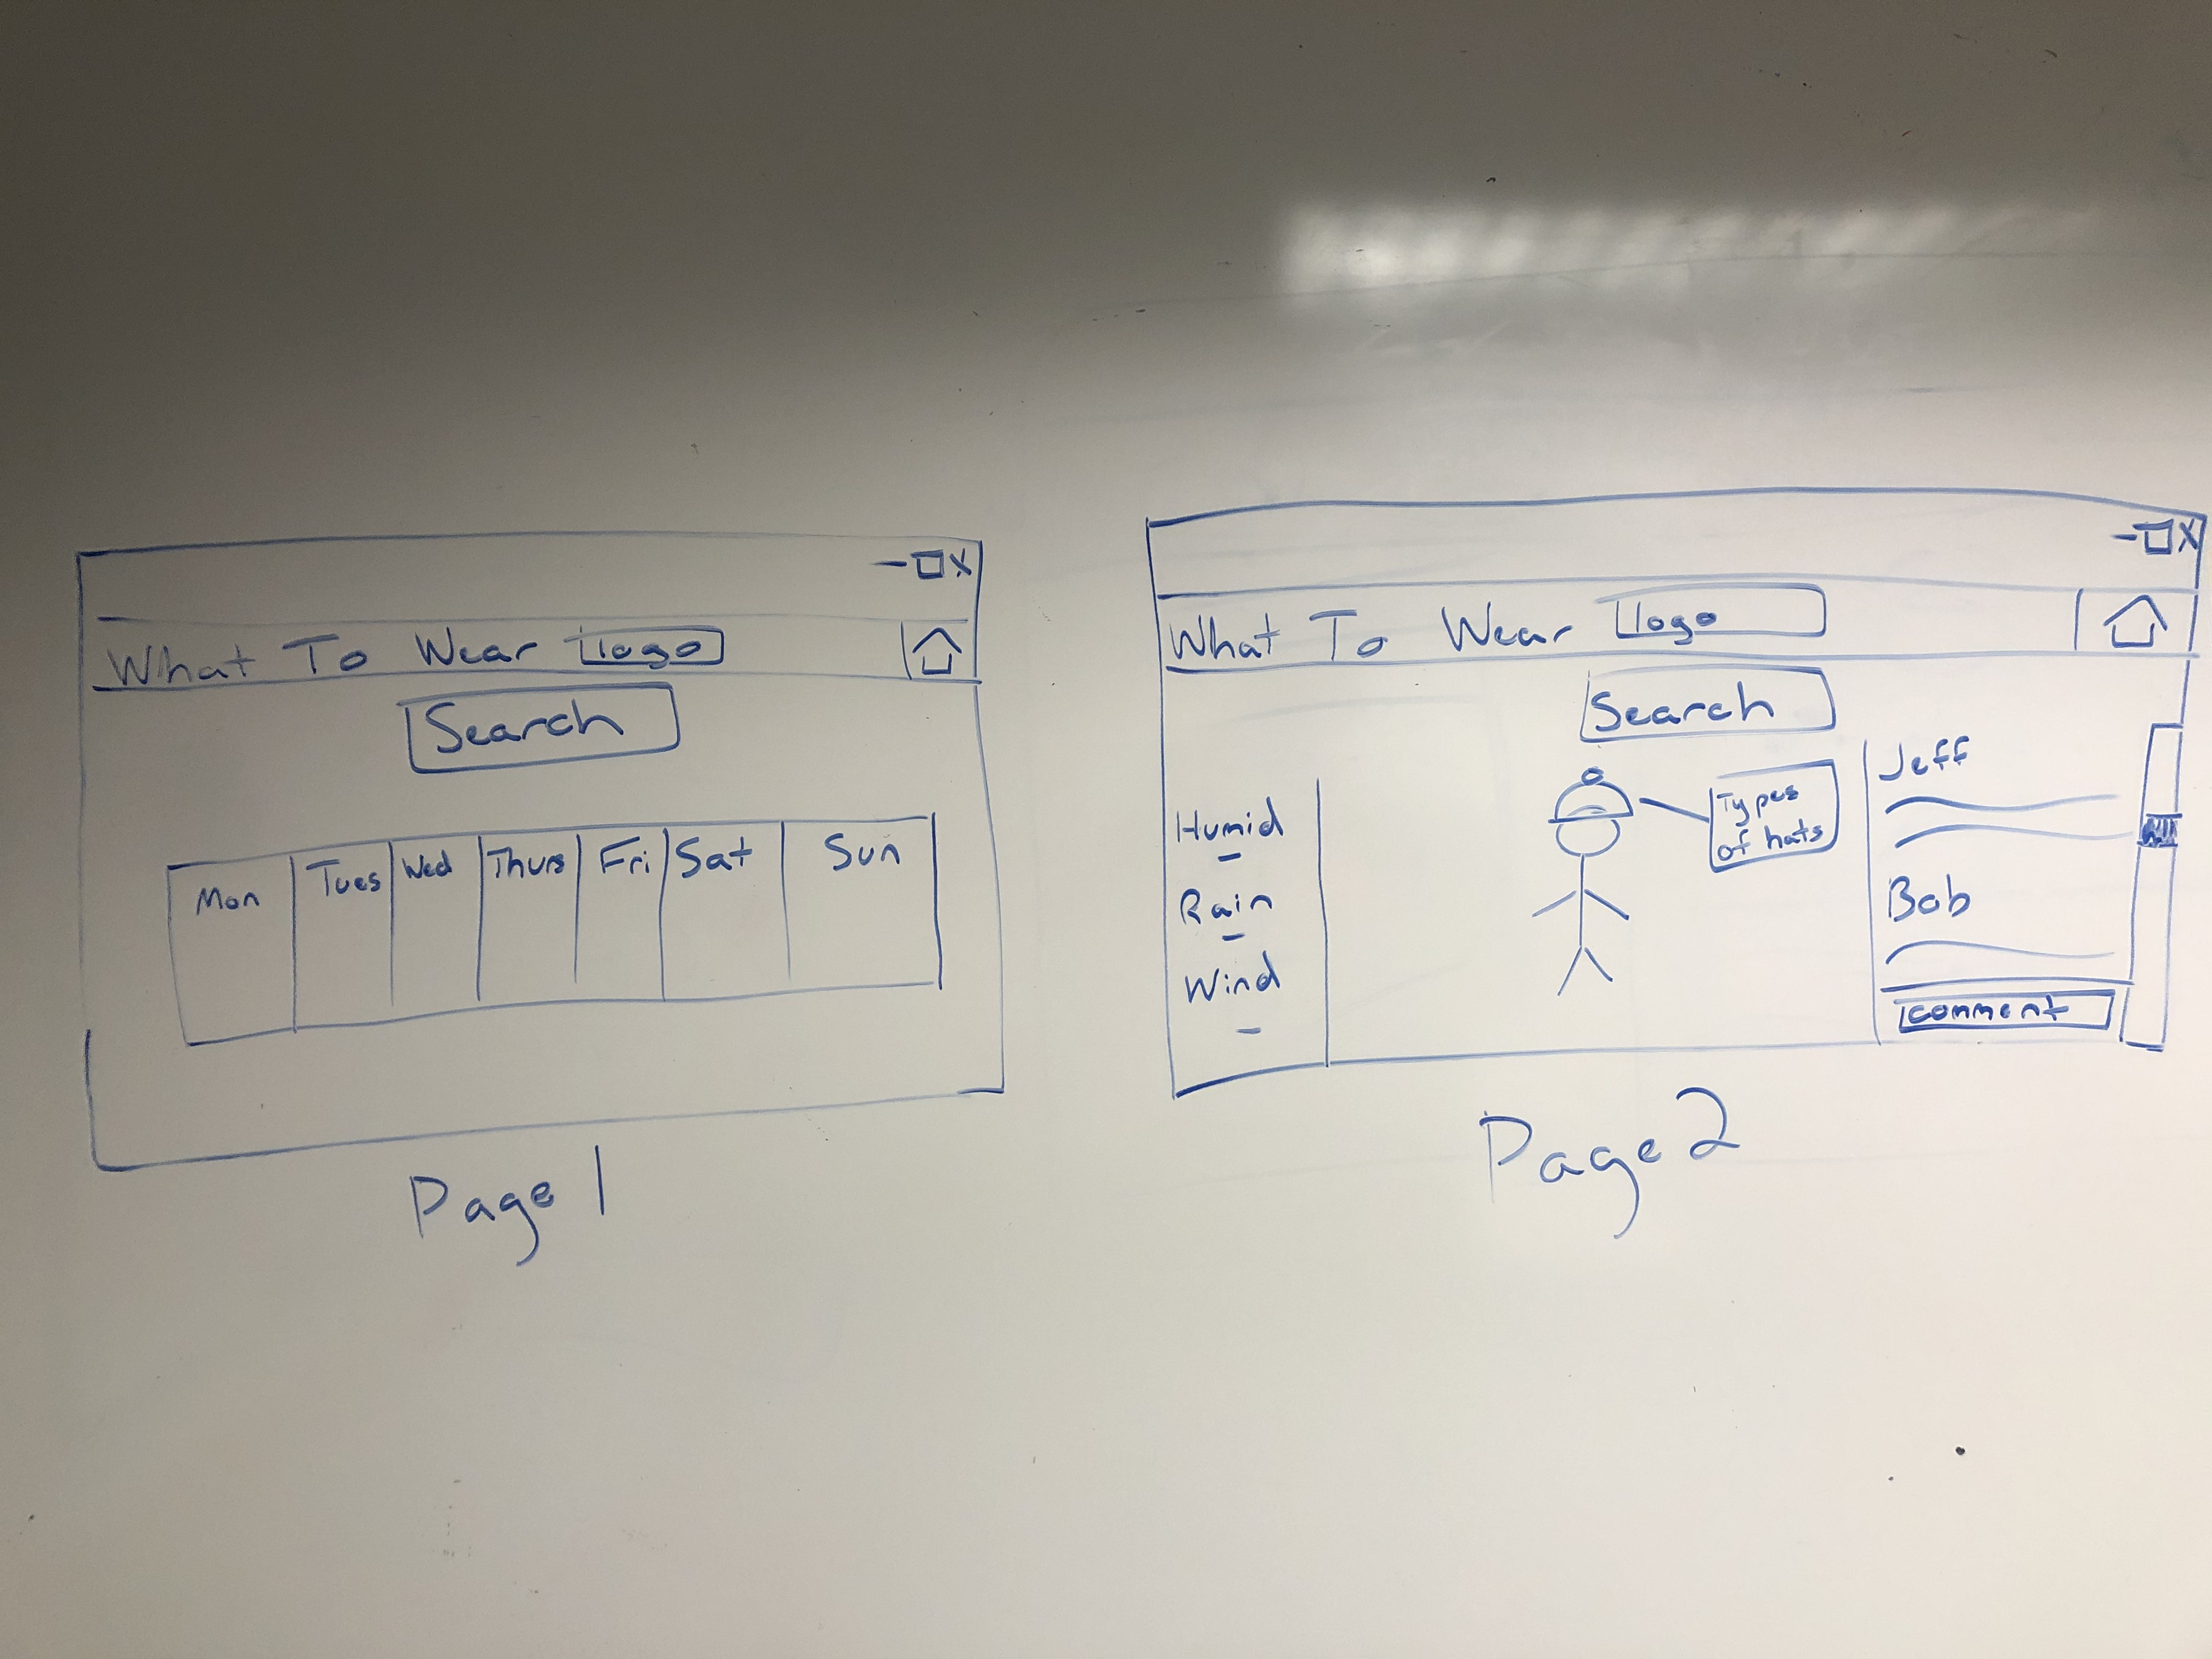 What To Wear logo
Search
Mon Tues Wed Thurs Fri Sat Sun
Page 1
What To Wear logo
Search
Humid
Rain
Wind
Types
of hats
Jeff
Bob
comment
Page 2